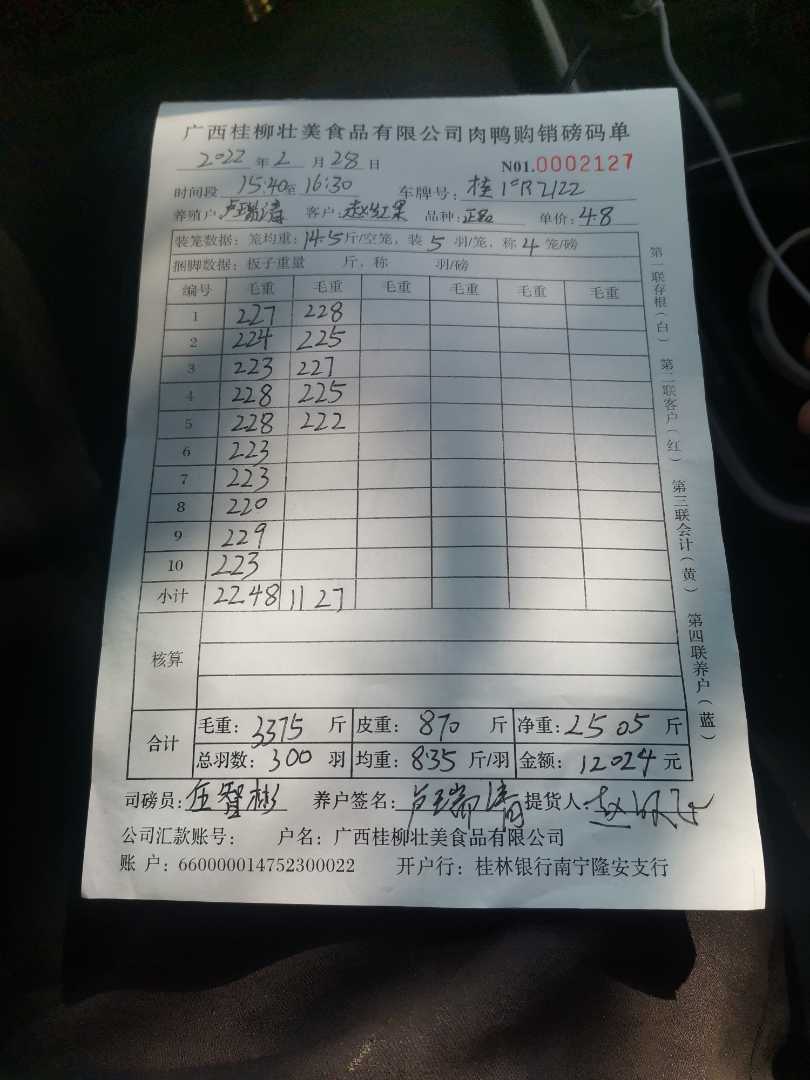 广西桂柳壮美食品有限公司肉鸭购销磅码单
2022 年 2 月 28 日 N01.0002127
时间段 15:40至 16:30 车牌号: 桂 R2122
养殖户 卢瑞清 客户: 赵红果 品种: 单价: 4.8
装笼数据: 笼均重: 14.5 斤/空笼, 装 5 羽/笼, 称 4 笼/磅
捆脚数据: 板子重量 斤, 称 羽/磅
编号 毛重 毛重 毛重 毛重 毛重 毛重
1 227 228
2 224 225
3 223 227
4 228 225
5 228 222
6 223
7 223
8 220
9 229
10 223
小计 2248 1127
核算
合计 毛重: 3375 斤 皮重: 870 斤 净重: 2505 斤
总羽数: 300 羽 均重: 8.35 斤/羽 金额: 12024 元
司磅员: 任智彬 养户签名: 卢瑞清 提货人 赵
公司汇款账号: 户名: 广西桂柳壮美食品有限公司
账 户: 660000014752300022 开户行: 桂林银行南宁隆安支行
第一联存根(白) 第二联客户(红) 第三联会计(黄) 第四联养户(蓝)